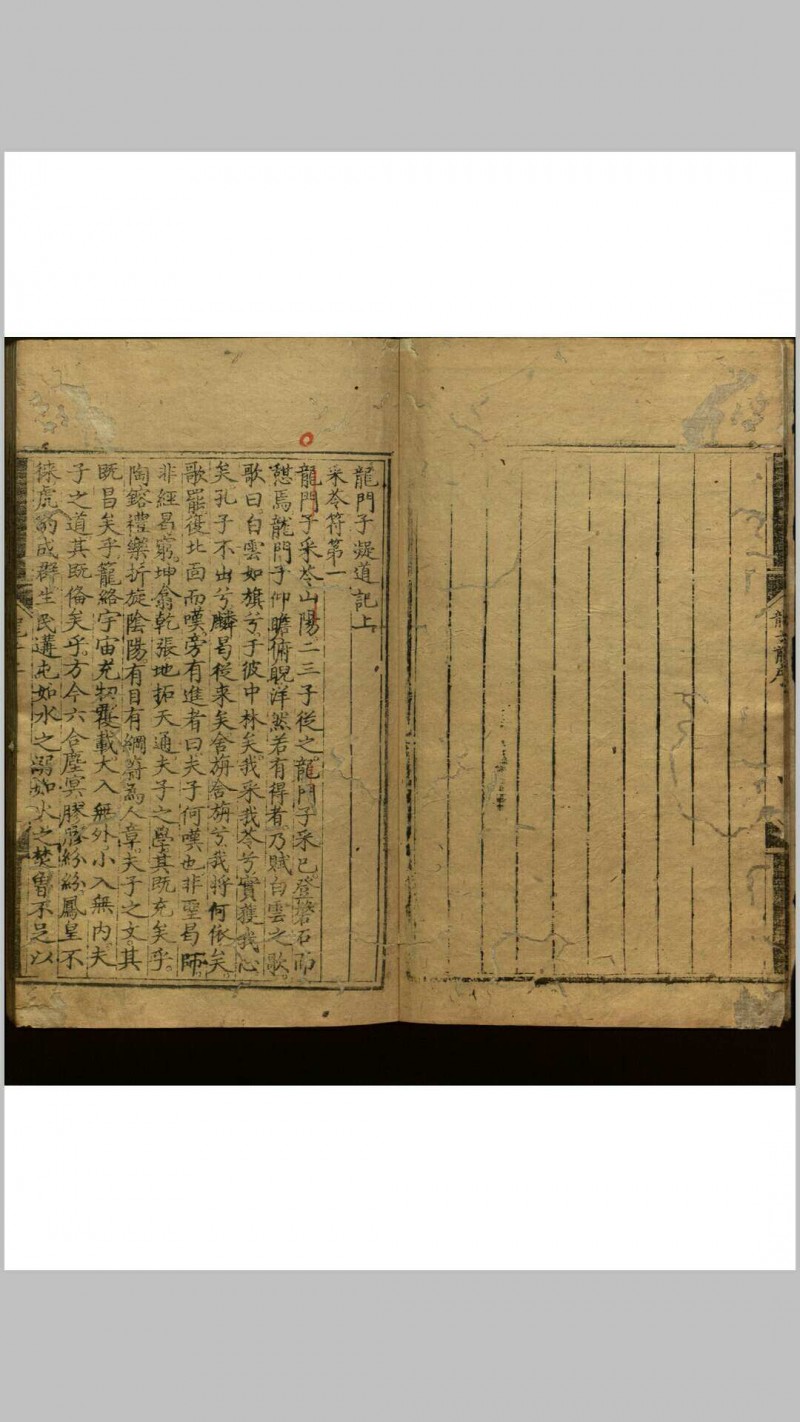 龍門子凝道記上
采苓符第一
龍門子采苓山陽二三子從之龍門子采已登磐石而
憇焉龍門子仰瞻俯睨洋然若有得者乃賦白雲之歌
歌曰白雲如旗兮于彼中林矣我采我苓兮實獲我心
矣孔子不出兮麟曷從來矣舍旃舍旃兮我將何依矣
歌罷復北面而嘆旁有進者曰夫子何嘆也非聖曷師
非經曷窮坤翕乾張地拓天通夫子之學其既充矣乎
陶鎔禮樂折旋陰陽有目有綱蔚為人章夫子之文其
既昌矣乎籠絡宇宙充牣覆載大入無外小入無內夫
子之道其既俻矣乎方今六合塵冥膠膠紛紛鳳皇不
徠虎豹成群生民遘屯如水之溺如火之焚曽不足以